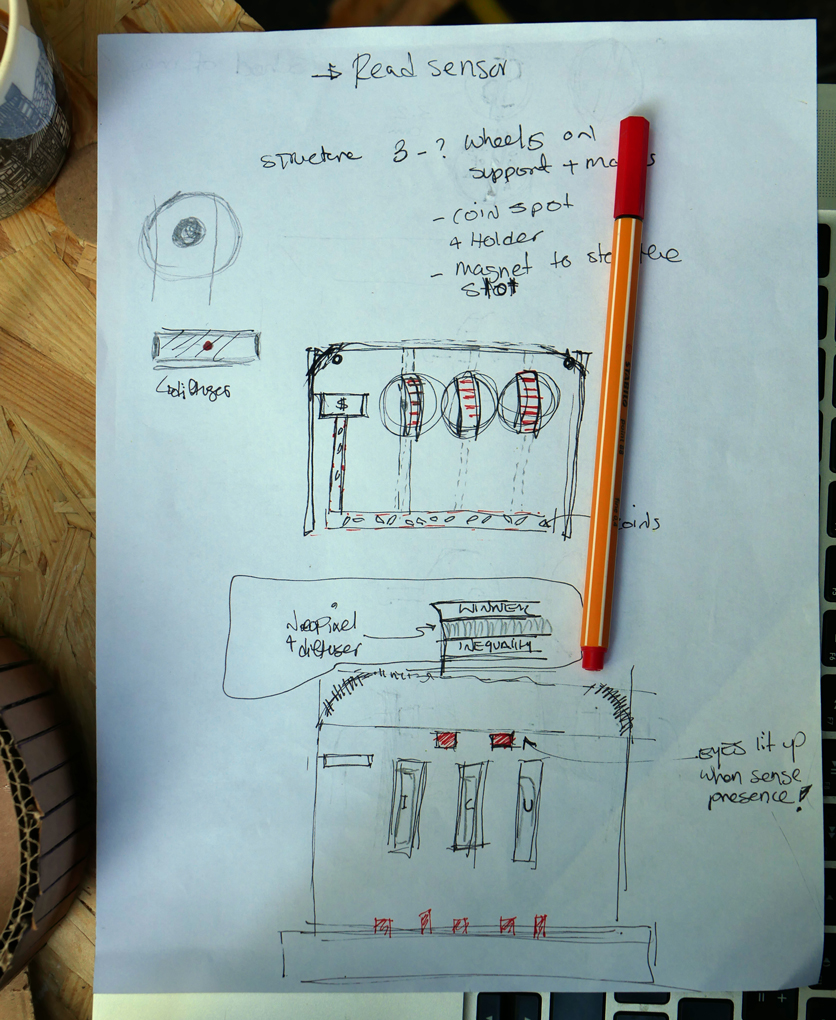 → Read sensor
structure 3-? wheels on
support + mo
- coin spot
+ Holder
- magnet to sto the
slot
diffuser
$
oins
Neopixel
+ diffuser
WINNER
INEQUALITY
EYES lit up
when sense
presence!
I C U